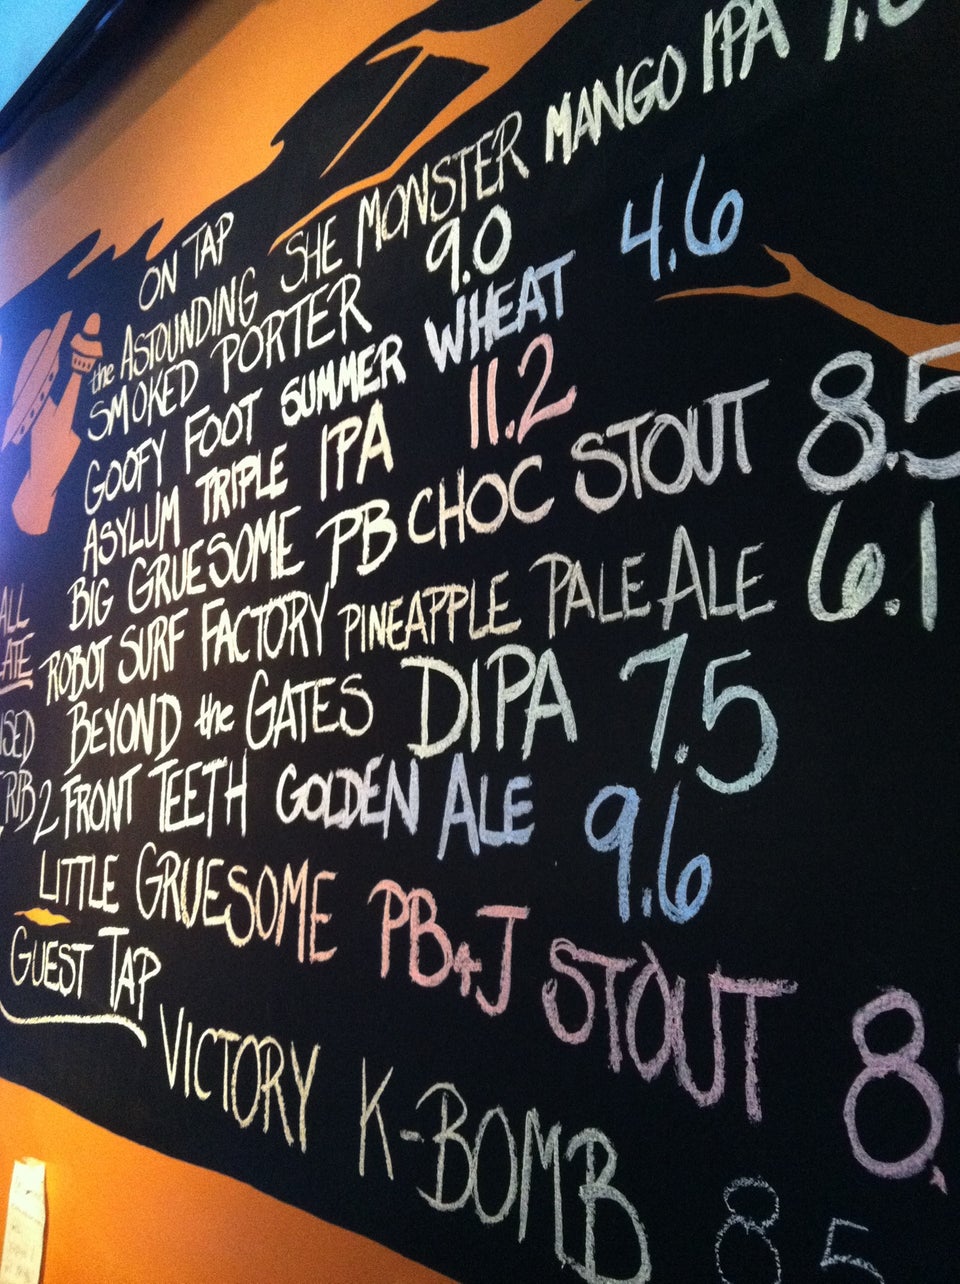 ON TAP
the ASTOUNDING SHE MONSTER MANGO IPA
SMOKED PORTER 9.0
GOOFY FOOT SUMMER WHEAT 4.6
ASYLUM TRIPLE IPA 11.2
BIG GRUESOME PB CHOC STOUT 8.5
ROBOT SURF FACTORY PINEAPPLE PALE ALE 6.1
BEYOND the GATES DIPA 7.5
2 FRONT TEETH GOLDEN ALE 9.6
LITTLE GRUESOME PB+J STOUT 8.
GUEST TAP
VICTORY K-BOMB 8.5